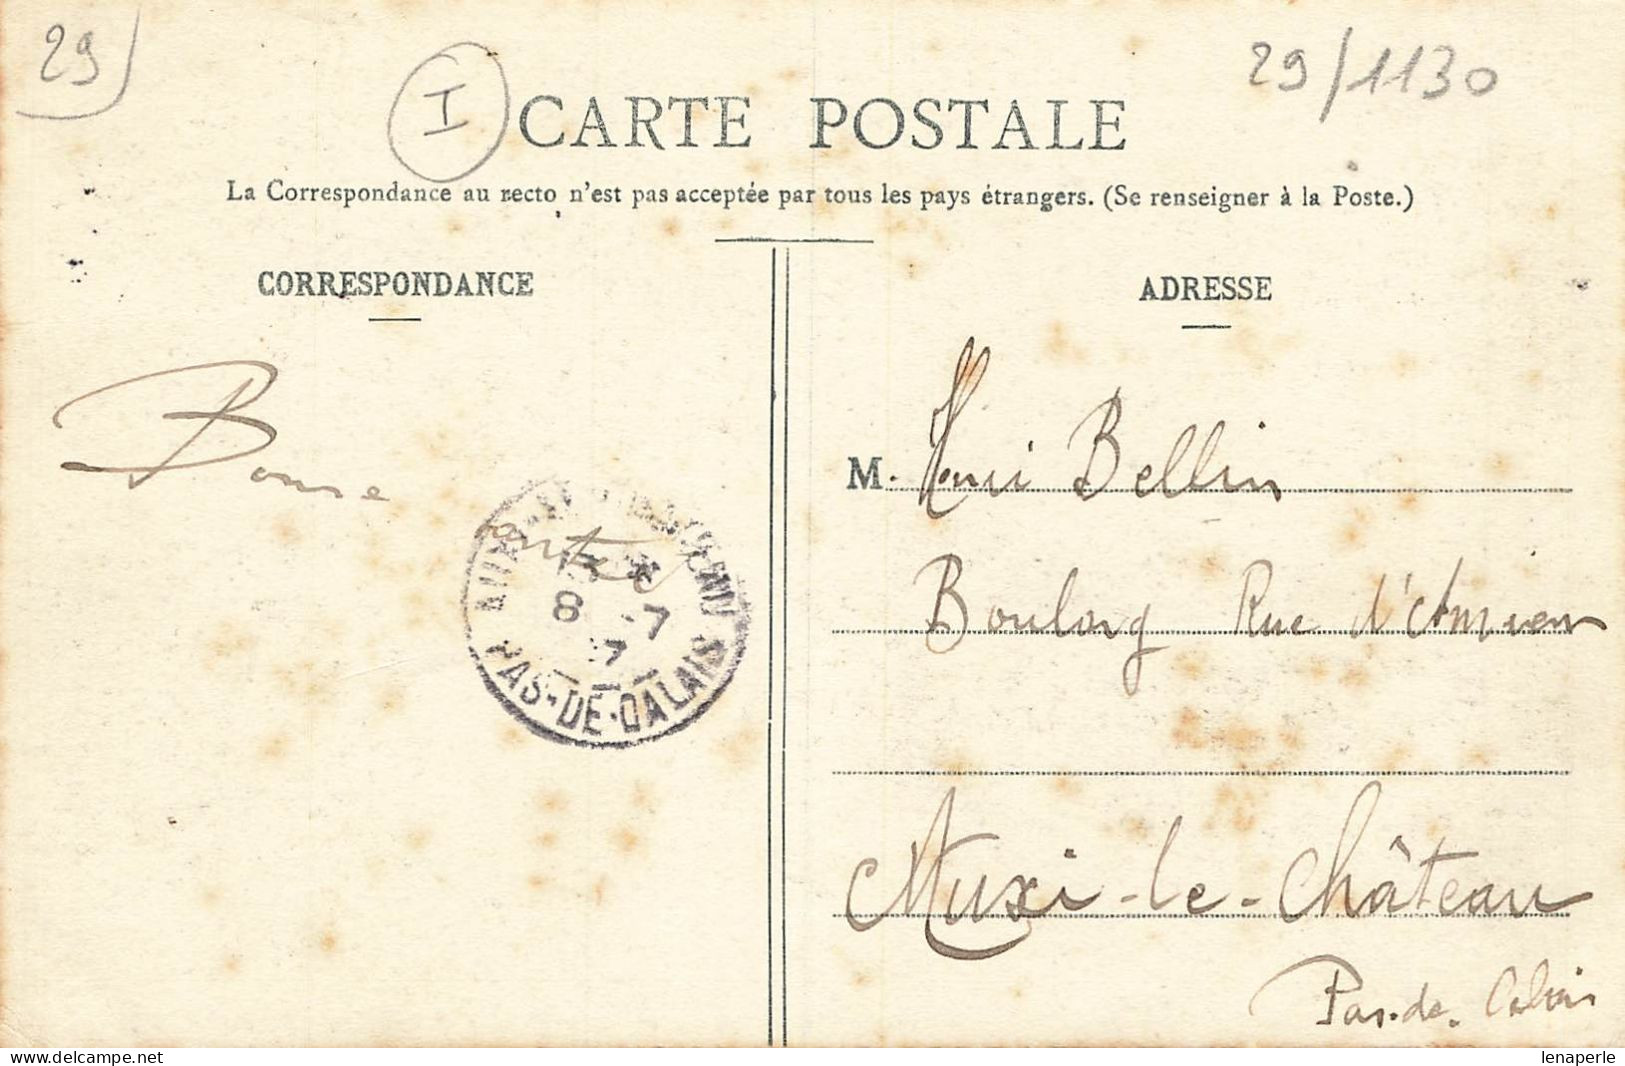 29
I
29/1130
CARTE POSTALE
La Correspondance au recto n'est pas acceptée par tous les pays étrangers. (Se renseigner à la Poste.)
CORRESPONDANCE
Bonne
santé
8 -7
PAS-DE-CALAIS
ADRESSE
M. Henri Bellin
Boulong Rue d'Amiens
Auxi-le-Château
Pas-de-Calais
lenaperle